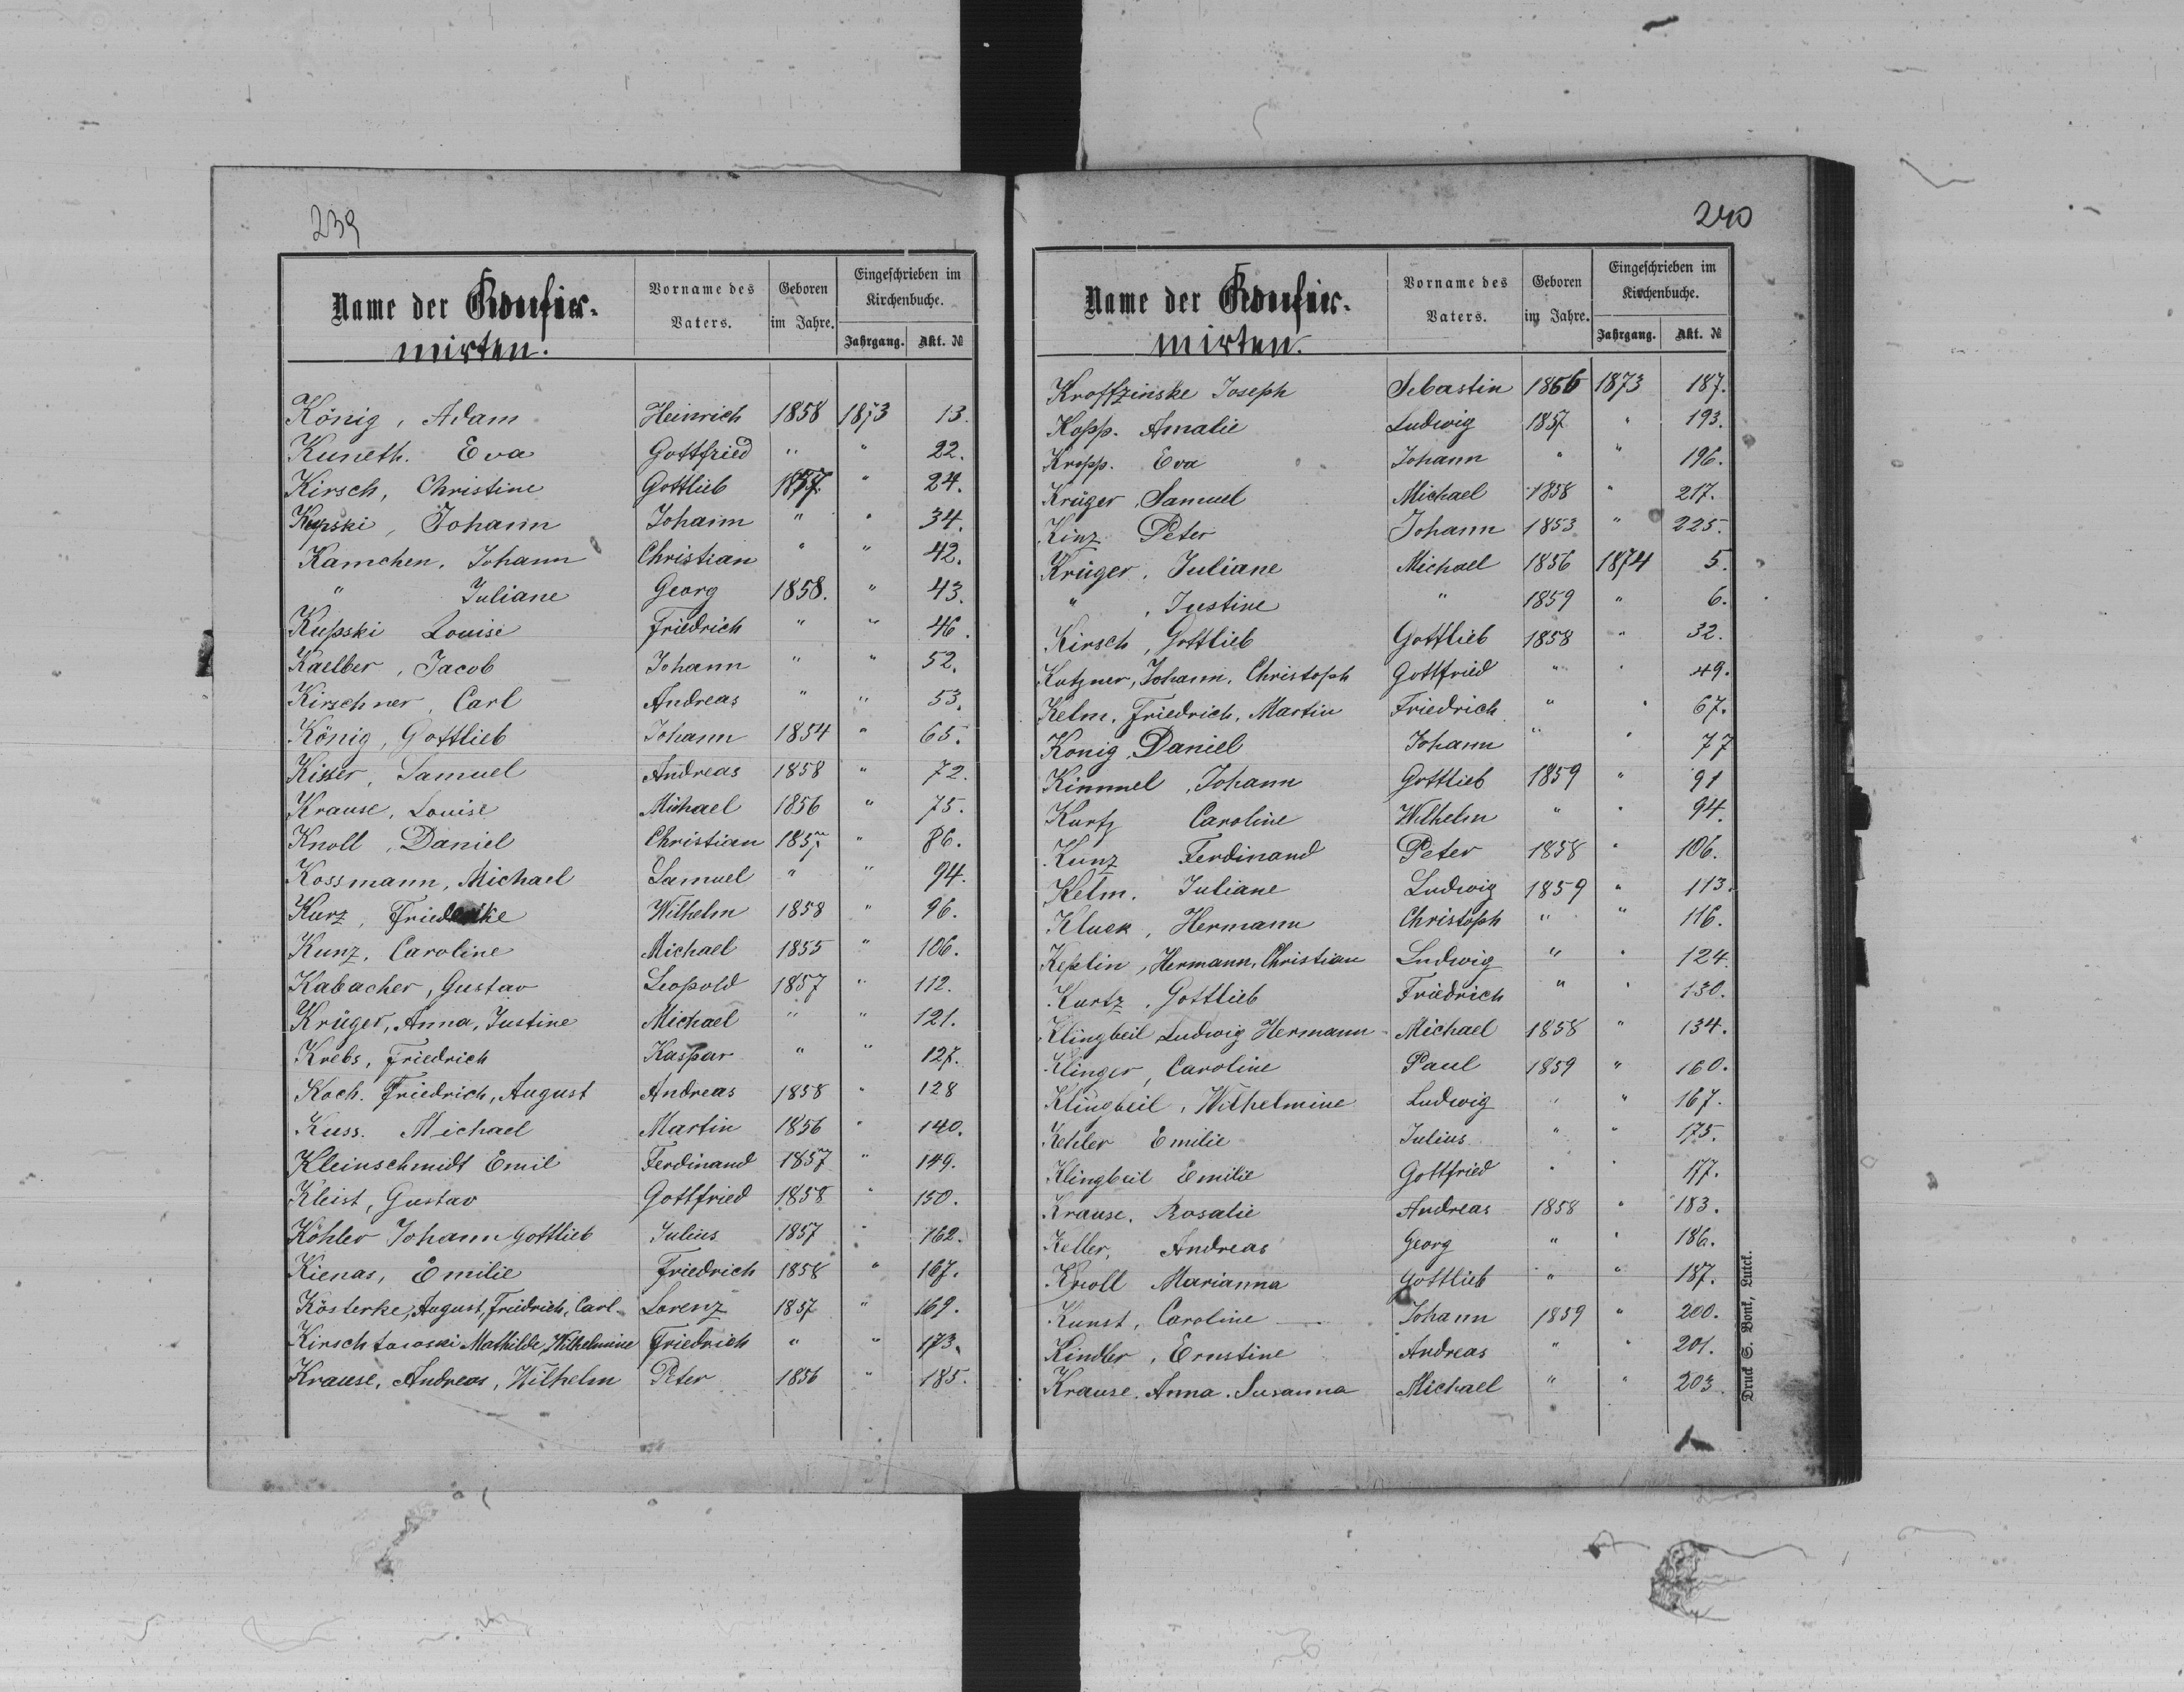 239
Name der Konfir-
mirten.
Vorname des Vaters.
Geboren im Jahre.
Eingeschrieben im Kirchenbuche.
Jahrgang. Akt. №
König, Adam Heinrich 1858 1873 13.
Kuneth. Eva Gottfried " " 22.
Kirsch, Christine Gottlieb 1857. " 24.
Kupski, Johann Johann " " 34.
Kamchen, Johann Christian " " 42.
" Juliane Georg 1858. " 43.
Kupski Louise Friedrich " " 46.
Kaelber, Jacob Johann " " 52.
Kirschner, Carl Andreas " " 53.
König, Gottlieb Johann 1854 " 65.
Kisser, Samuel Andreas 1858 " 72.
Krause, Louise Michael 1856 " 75.
Knoll, Daniel Christian 1857. " 86.
Kossmann, Michael Samuel " " 94.
Kurz, Friederike Wilhelm 1858 " 96.
Kunz, Caroline Michael 1855 " 106.
Kabacher, Gustav Leopold 1857 " 112.
Krüger, Anna, Justine Michael " " 121.
Krebs, Friedrich Kaspar " " 127.
Koch. Friedrich, August Andreas 1858 " 128
Kuss. Michael Martin 1856 " 140.
Kleinschmidt Emil Ferdinand 1857 " 149.
Kleist, Gustav Gottfried 1858 " 150.
Köhler Johann Gottlieb Julius 1857 " 162.
Kienas, Emilie Friedrich 1858 " 167.
Kösterke, August, Friedrich, Carl Lorenz 1857 " 169.
Mathilde, Wilhelmine Friedrich " " 173.
Krause, Andreas, Wilhelm Peter 1856 " 185.
240
Name der Konfir-
mirten.
Vorname des Vaters.
Geboren im Jahre.
Eingeschrieben im Kirchenbuche.
Jahrgang. Akt. №
Joseph Sebastin 1856 1873 187.
Kopp. Amalie Ludwig 1857 " 193.
Kropp. Eva Johann " " 196.
Krüger, Samuel Michael 1858 " 217.
Kinz Peter Johann 1853 " 225.
Krüger, Juliane Michael 1856 1874 5.
" , Justine " 1859 " 6.
Kirsch, Gottlieb Gottlieb 1858 " 32.
Kutzner, Johann, Christoph Gottfried " " 49.
Kelm, Friedrich, Martin Friedrich " " 67.
Konig, Daniel Johann " " 77
Kimmel, Johann Gottlieb 1859 " 91
Kurtz Caroline Wilhelm " " 94.
Kunz Ferdinand Peter 1858 " 106.
Kelm. Juliane Ludwig 1859 " 113.
Kluck, Hermann Christoph " " 116.
Keplin, Hermann, Christian Ludwig " " 124.
Kurtz, Gottlieb Friedrich " " 130.
Klingbeil Ludwig Hermann Michael 1858 " 134.
Klinger, Caroline Paul 1859 " 160.
Klingbeil, Wilhelmine Ludwig " " 167.
Kehler Emilie Julius " " 175.
Klingbeil Emilie Gottfried " " 177.
Krause, Rosalie Andreas 1858 " 183.
Keller, Andreas Georg " " 186.
Knoll Marianna Gottlieb " " 187.
Kunst, Caroline Johann 1859 " 200.
Kindler, Ernstine Andreas " " 201.
Krause. Anna. Susanna Michael " " 203.
Druck S. Bonk, Lutck.